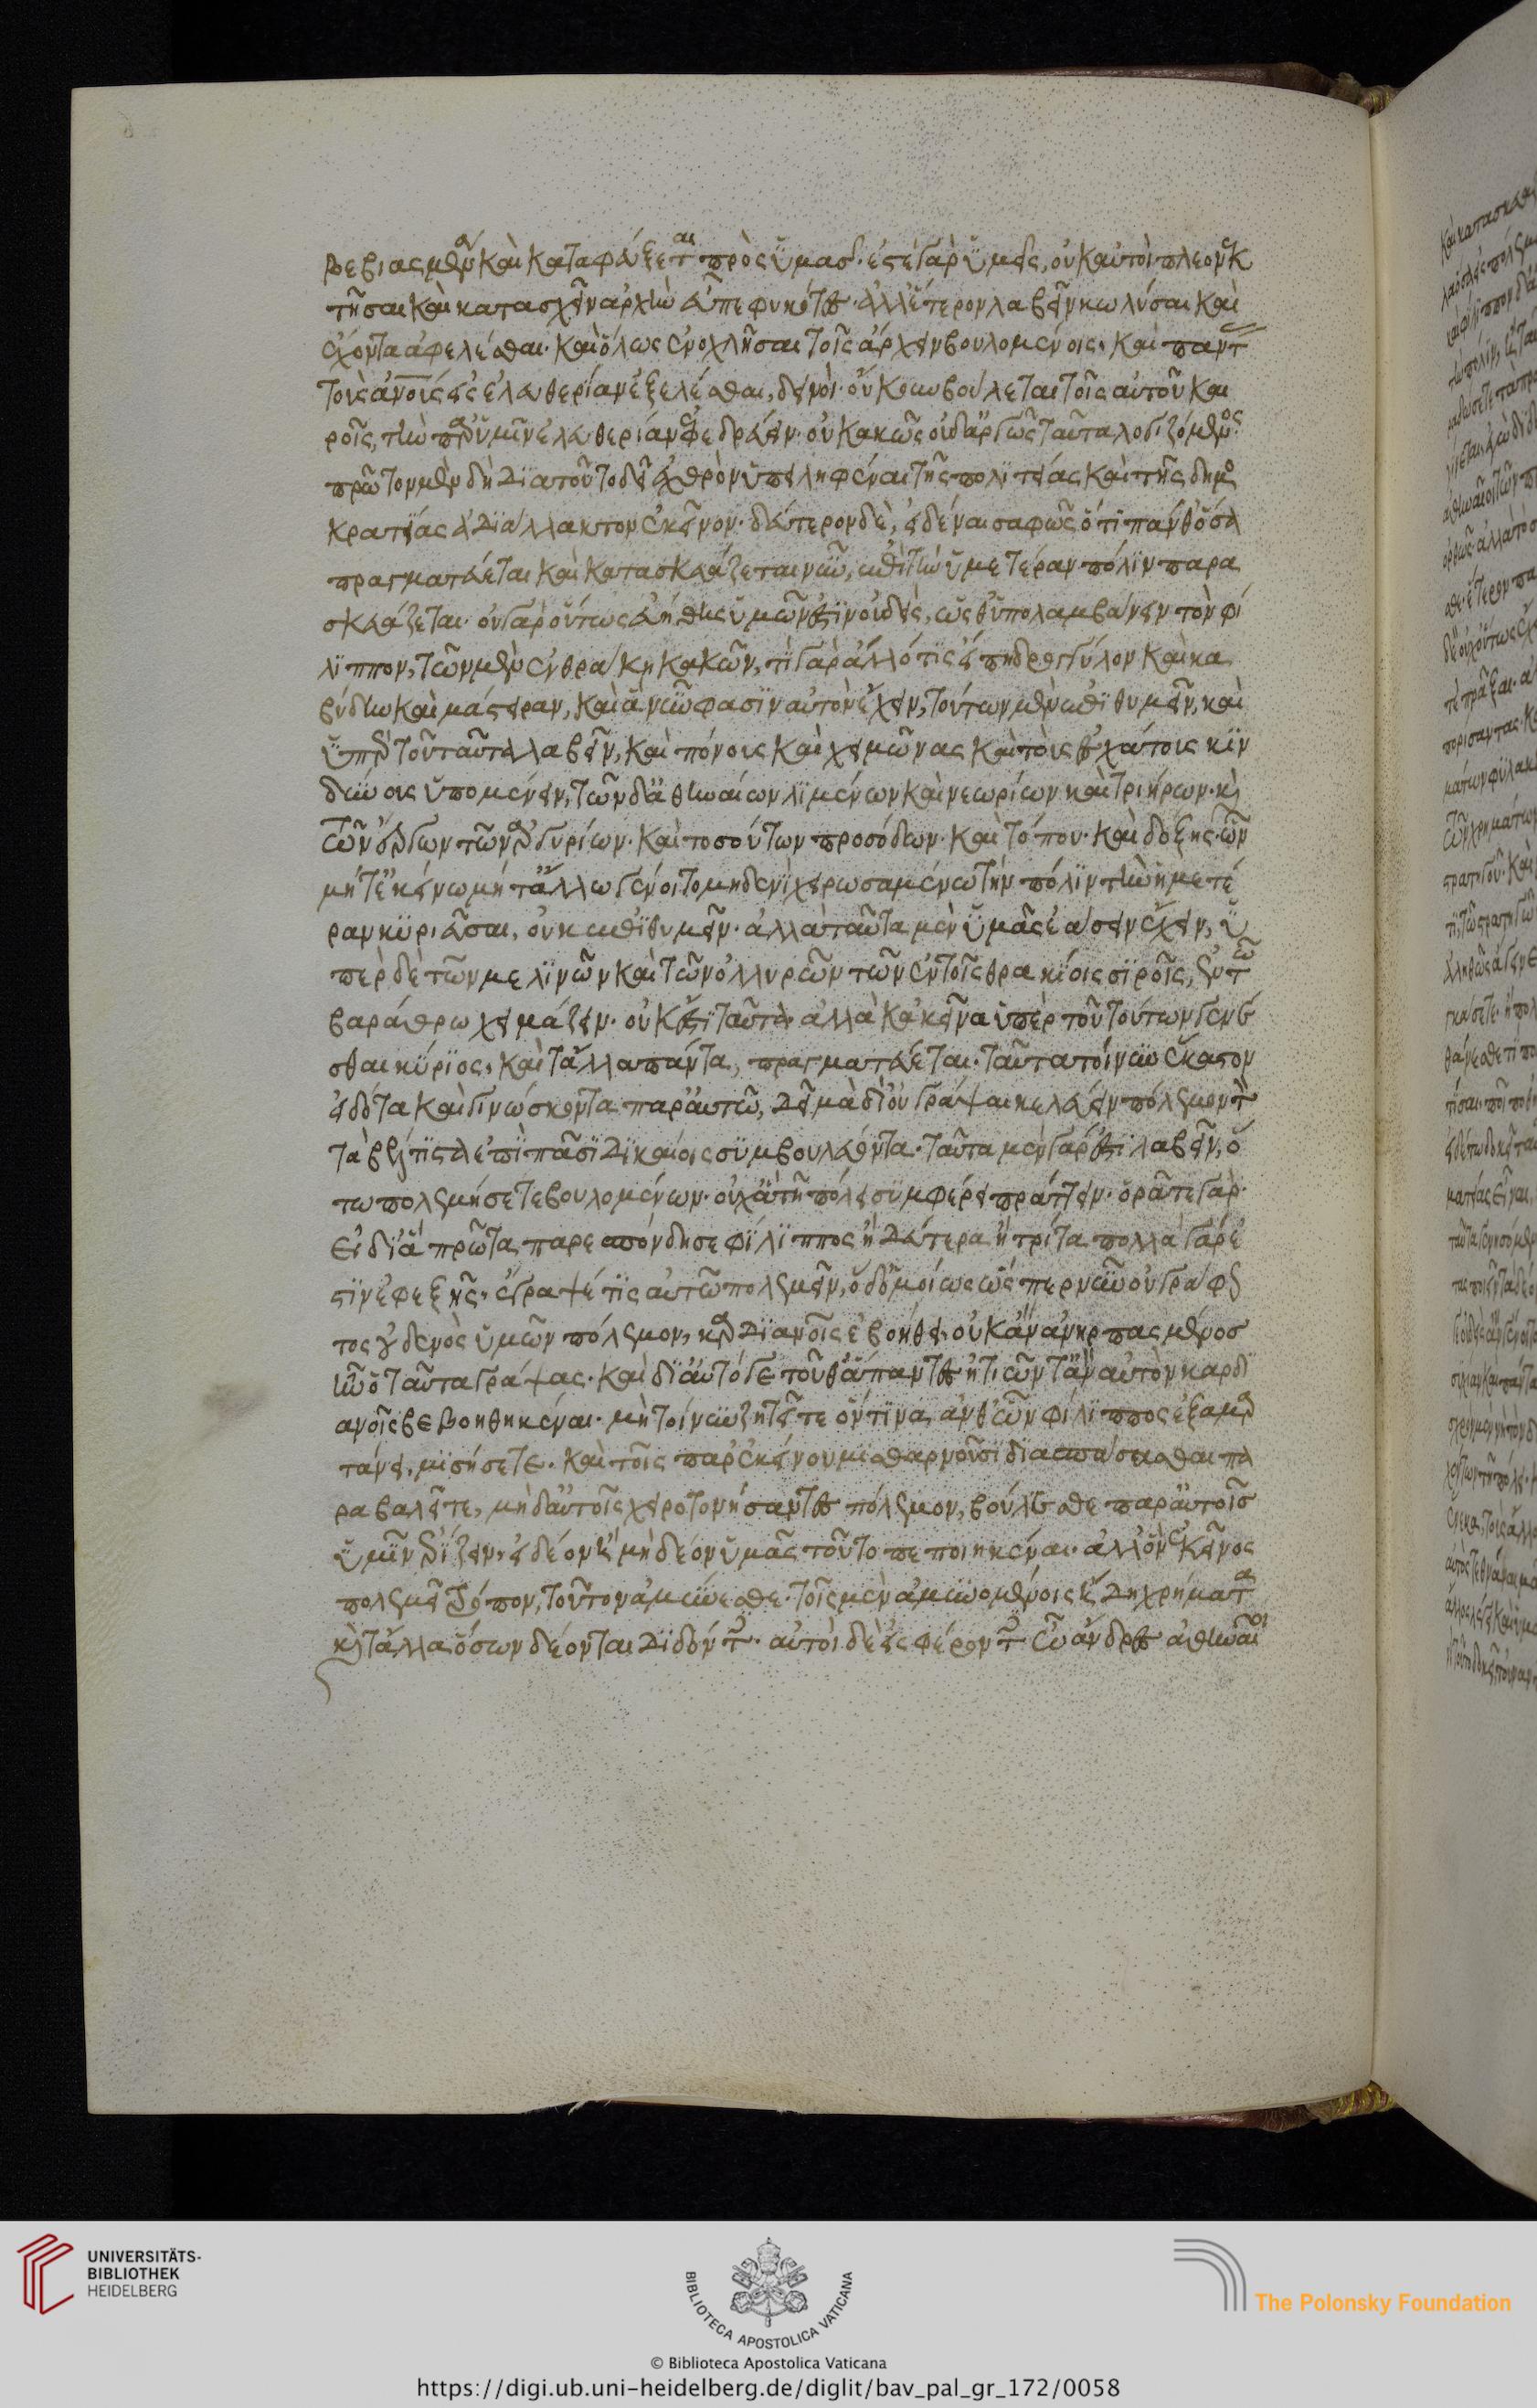 βεβιασμένων καὶ καταφεύξεται πρὸς ὑμᾶσ· ἐστὲ γὰρ ὑμεῖς, οὐκ αὐτοὶ πλεονεκ
τῆσαι καὶ κατασχεῖν ἀρχὴν εὖ πεφυκότες· ἀλλ' ἕτερον λαβεῖν κωλύσαι καὶ
ἔχοντα ἀφελέσθαι· καὶ ὅλως ἐνοχλῆσαι τοῖς ἄρχειν βουλομένοις· καὶ παντ
τοις ἀνοις εἰς ἐλευθερίαν ἐξελέσθαι, δεινοὶ· οὔκουν βούλεται τοῖς αὑτοῦ και
ροῖς, τὴν παρ' ὑμῖν ἐλευθερίαν ἐφεδρεύειν· οὐ κακῶς οὐδ' ἀργῶς ταῦτα λογιζόμενος·
πρῶτον μὲν δὴ διὰ τοῦτο δεῖ ἐχθρὸν ὑπειληφέναι τῆς πολιτείας καὶ τῆς δημο
κρατίας ἀδιάλλακτον ἐκεῖνον· δεύτερον δὲ, εἰδέναι σαφῶς ὅτι πάνθ' ὅσα
πραγματεύεται καὶ κατασκευάζεται νῦν, ἐπὶ τὴν ὑμετέραν πόλιν παρα
σκευάζεται· οὐ γὰρ οὕτως εὐήθης ὑμῶν ἐστιν οὐδεὶς, ὡς θ' ὑπολαμβάνειν τὸν φί
λιππον, τῶν μὲν ἐν θράκη κακῶν, τί γὰρ ἂν ἄλλό τις εἴπη δρογγύλον καὶ κα
βύλην καὶ μάστειραν, καὶ ἃ νῦν φασὶν αὐτὸν ἔχειν, τούτων μὲν ἐπιθυμεῖν, καὶ
ὑπὲρ τοῦ ταῦτα λαβεῖν, καὶ πόνους καὶ χειμῶνας καὶ τοὺς ἐσχάτους κιν
δύνους ὑπομένειν, τῶν δ' ἀθηναίων λιμένων καὶ νεωρίων καὶ τριήρων· κὶ
τῶν ἔργων τῶν ἀργυρίων· καὶ τοσούτων προσόδων· καὶ τόπου· καὶ δόξης· ὧν
μήτ' ἐκείνω μήτ' ἄλλω γένοιτο μηδενὶ χειρωσαμένω τὴν πόλιν τὴν ἡμετέ
ραν κυριεῦσαι, οὐκ ἐπιθυμεῖν· ἀλλὰ ταῦτα μὲν ὑμᾶς ἐάσειν ἔχειν, ὑ
πὲρ δὲ τῶν μελινῶν καὶ τῶν ὀλυρῶν τῶν ἐν τοῖς θρακίοις σιροῖς, ἐν τῶ
βαράθρω χειμάζειν· οὐκ ἔστι ταῦτα· ἀλλὰ κἀκεῖνα ὑπὲρ τοῦ τούτων γενέ
σθαι κύριος· καὶ τἄλλα πάντα, πραγματεύεται· ταῦτα τοίνυν ἕκαστον
εἰδότα καὶ γινώσκοντα παρ' αὑτῶ, δεῖ μὰ δί' οὐ γράψαι κελεύειν πόλεμον τ
τὰ βέλτιστα ἐπὶ πᾶσι δικαίοις συμβουλεύοντα· ταῦτα μὲν γάρ ἐστι λαβεῖν, ὅ
τω πολεμήσετε βουλομένων· οὐχ ἃ τῆ πόλει συμφέρει πράττειν· ὁρᾶτε γὰρ·
εἰ δι' ἃ πρῶτα παρεσπόνδησε φίλιππος ἢ δεύτερα ἢ τρίτα πολλὰ γάρ ἐ
στιν ἐφεξῆς· ἔγραψέ τις αὐτῶ πολεμεῖν, ὁ δ' ὁμοίως ὥσπερ νῦν οὐ γράφον
τος οὐδενὸς ὑμῶν πόλεμον, καρδιανοῖς ἐβοήθει· οὐκ ἂν ἀνηρπασμένος
ἦν ὁ ταῦτα γράψας· καὶ διὰ τό γε τοῦθ' ἅπαντες ᾐτιῶντ' ἂν αὐτὸν καρδι
ανοῖς βεβοηθηκέναι· μὴ τοίνυν ζητεῖτε ὅντινα, ἀνθ' ὧν φίλιππος ἐξαμαρ
τάνει, μισήσετε· καὶ τοῖς παρ' ἐκείνου μισθαρνοῦσι διασπάσασθαι πα
ραβαλεῖτε, μὴ δ' αὐτοῖς χειροτονήσαντες πόλεμον, βούλεσθε παρ' αὐτοῖς
ὑμῖν ἐρίζειν, εἰ δέον ἢ μὴ δέον ὑμᾶς τοῦτο πεποιηκέναι· ἀλλ' ὃν ἐκεῖνος
πολεμεῖ τρόπον, τοῦτον ἀμύνεσθε· τοῖς μὲν ἀμυνομένοις ἤδη χρήματα
κὶ τἄλλα ὅσων δέονται διδόντες· αὐτοὶ δὲ εἰσφέροντες ὦ ἄνδρες ἀθηναῖοι
UNIVERSITÄTS-
BIBLIOTHEK
HEIDELBERG
BIBLIOTECA APOSTOLICA VATICANA
The Polonsky Foundation
© Biblioteca Apostolica Vaticana
https://digi.ub.uni-heidelberg.de/diglit/bav_pal_gr_172/0058